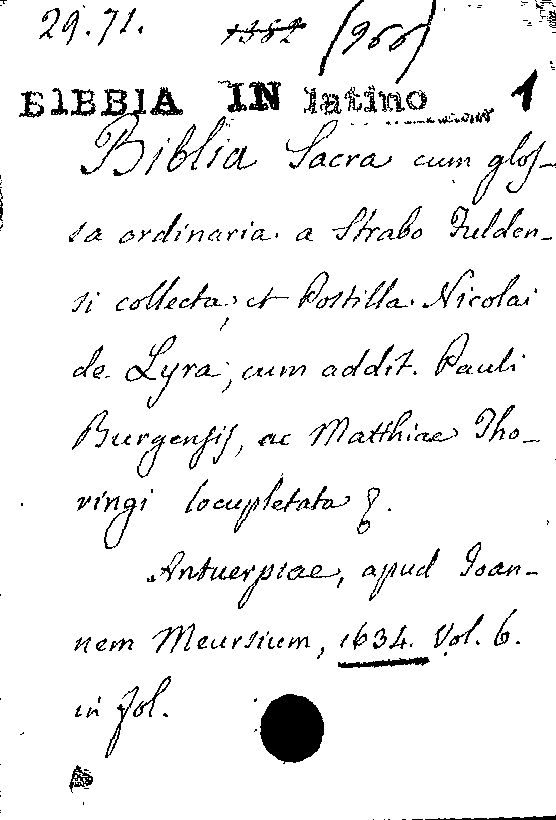 29.71. 1382 (966)
BIBBIA IN latino 1
Biblia Sacra cum glos-
sa ordinaria a Strabo Fulden-
si collecta, et Postilla Nicolai
de Lyra, cum addit. Pauli
Burgensis, ac Matthiae Tho-
ringi locupletata
Antuerpiae, apud Ioan-
nem Meursium, 1634. Vol. 6.
in fol.